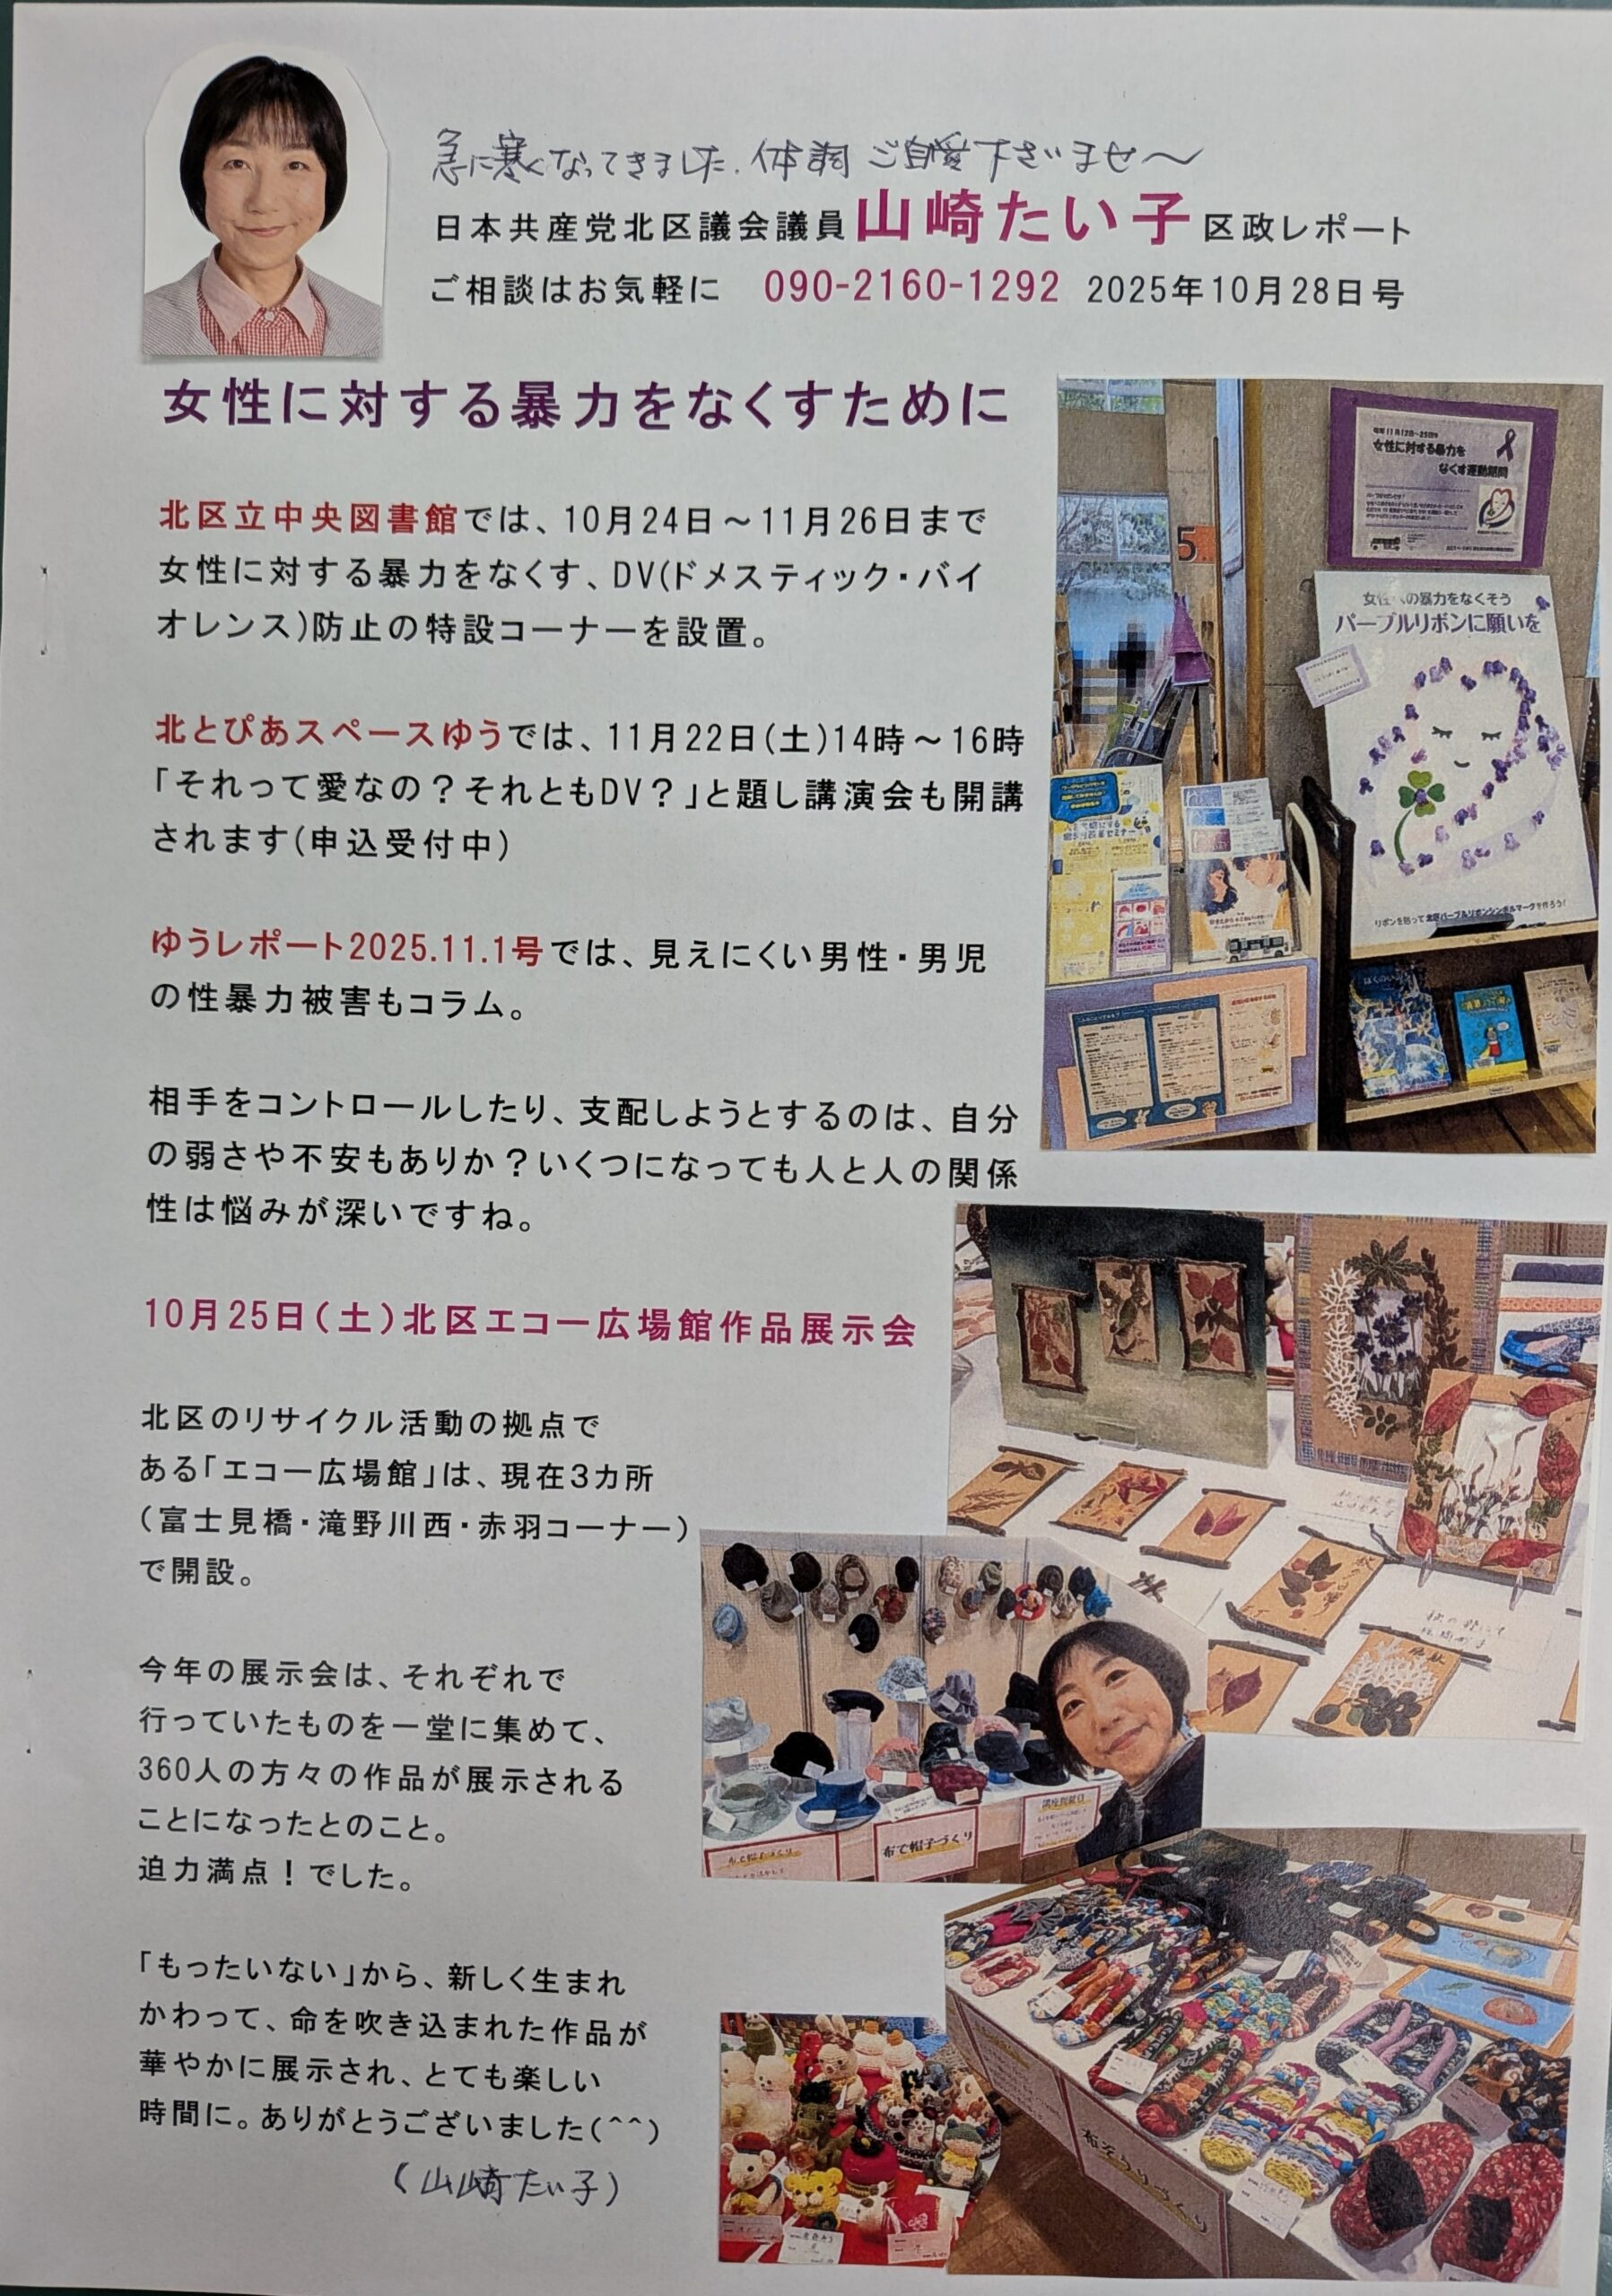 急に寒くなってきました.体調ご自愛下さいませ〜
日本共産党北区議会議員山崎たい子区政レポート
ご相談はお気軽に 090-2160-1292 2025年10月28日号
女性に対する暴力をなくすために
北区立中央図書館では、10月24日～11月26日まで
女性に対する暴力をなくす、DV(ドメスティック・バイ
オレンス)防止の特設コーナーを設置。
北とぴあスペースゆうでは、11月22日(土)14時～16時
「それって愛なの？それともDV？」と題し講演会も開講
されます(申込受付中)
ゆうレポート2025.11.1号では、見えにくい男性・男児
の性暴力被害もコラム。
相手をコントロールしたり、支配しようとするのは、自分
の弱さや不安もありか？いくつになっても人と人の関係
性は悩みが深いですね。
女性に対する暴力を
なくす運動期間
5
女性への暴力をなくそう
パープルリボンに願いを
リボンを貼って北区パープルリボンシンボルマークを作ろう！
10月25日（土）北区エコー広場館作品展示会
北区のリサイクル活動の拠点で
ある「エコー広場館」は、現在3カ所
（富士見橋・滝野川西・赤羽コーナー）
で開設。
今年の展示会は、それぞれで
行っていたものを一堂に集めて、
360人の方々の作品が展示される
ことになったとのこと。
迫力満点！でした。
「もったいない」から、新しく生まれ
かわって、命を吹き込まれた作品が
華やかに展示され、とても楽しい
時間に。ありがとうございました(^^)
（山崎たい子）
布で帽子づくり
布ぞうりづくり